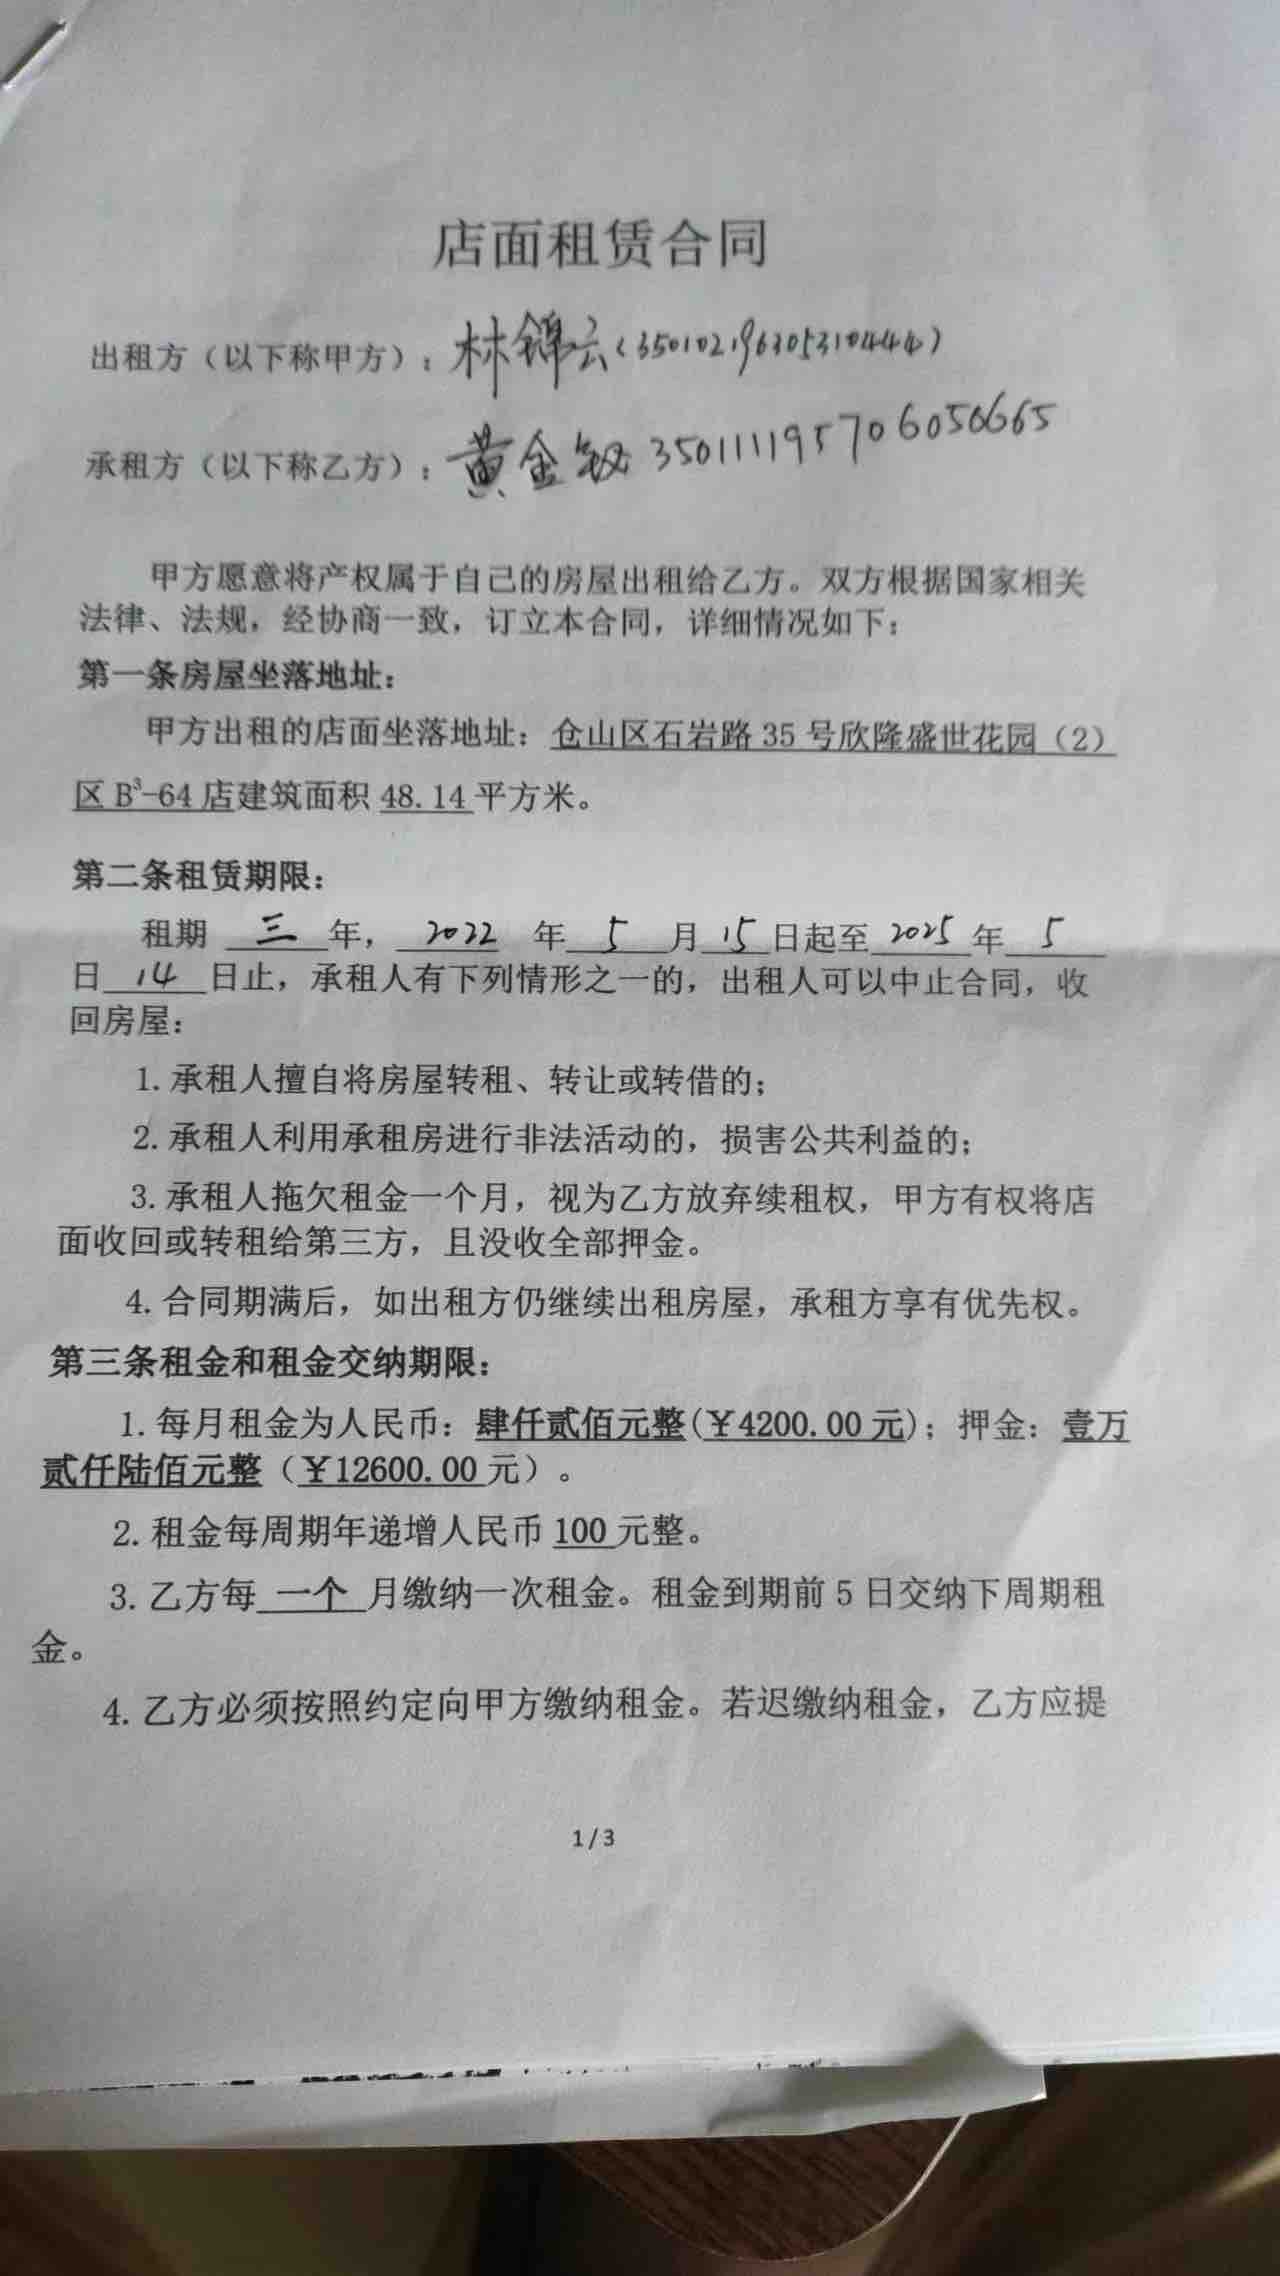 店面租赁合同
出租方（以下称甲方）：林锦云（350102196305310444）
承租方（以下称乙方）：黄金钗 350111195706050665
甲方愿意将产权属于自己的房屋出租给乙方。双方根据国家相关
法律、法规，经协商一致，订立本合同，详细情况如下：
第一条房屋坐落地址：
甲方出租的店面坐落地址：仓山区石岩路 35 号欣隆盛世花园（2）
区 B³-64 店建筑面积 48.14 平方米。
第二条租赁期限：
租期 三 年， 2022 年 5 月 15 日起至 2025 年 5
日 14 日止，承租人有下列情形之一的，出租人可以中止合同，收
回房屋：
1. 承租人擅自将房屋转租、转让或转借的；
2. 承租人利用承租房进行非法活动的，损害公共利益的；
3. 承租人拖欠租金一个月，视为乙方放弃续租权，甲方有权将店
面收回或转租给第三方，且没收全部押金。
4. 合同期满后，如出租方仍继续出租房屋，承租方享有优先权。
第三条租金和租金交纳期限：
1. 每月租金为人民币：肆仟贰佰元整(￥4200.00 元)；押金：壹万
贰仟陆佰元整（￥12600.00 元）。
2. 租金每周期年递增人民币 100 元整。
3. 乙方每 一个 月缴纳一次租金。租金到期前 5 日交纳下周期租
金。
4. 乙方必须按照约定向甲方缴纳租金。若迟缴纳租金，乙方应提
1 / 3